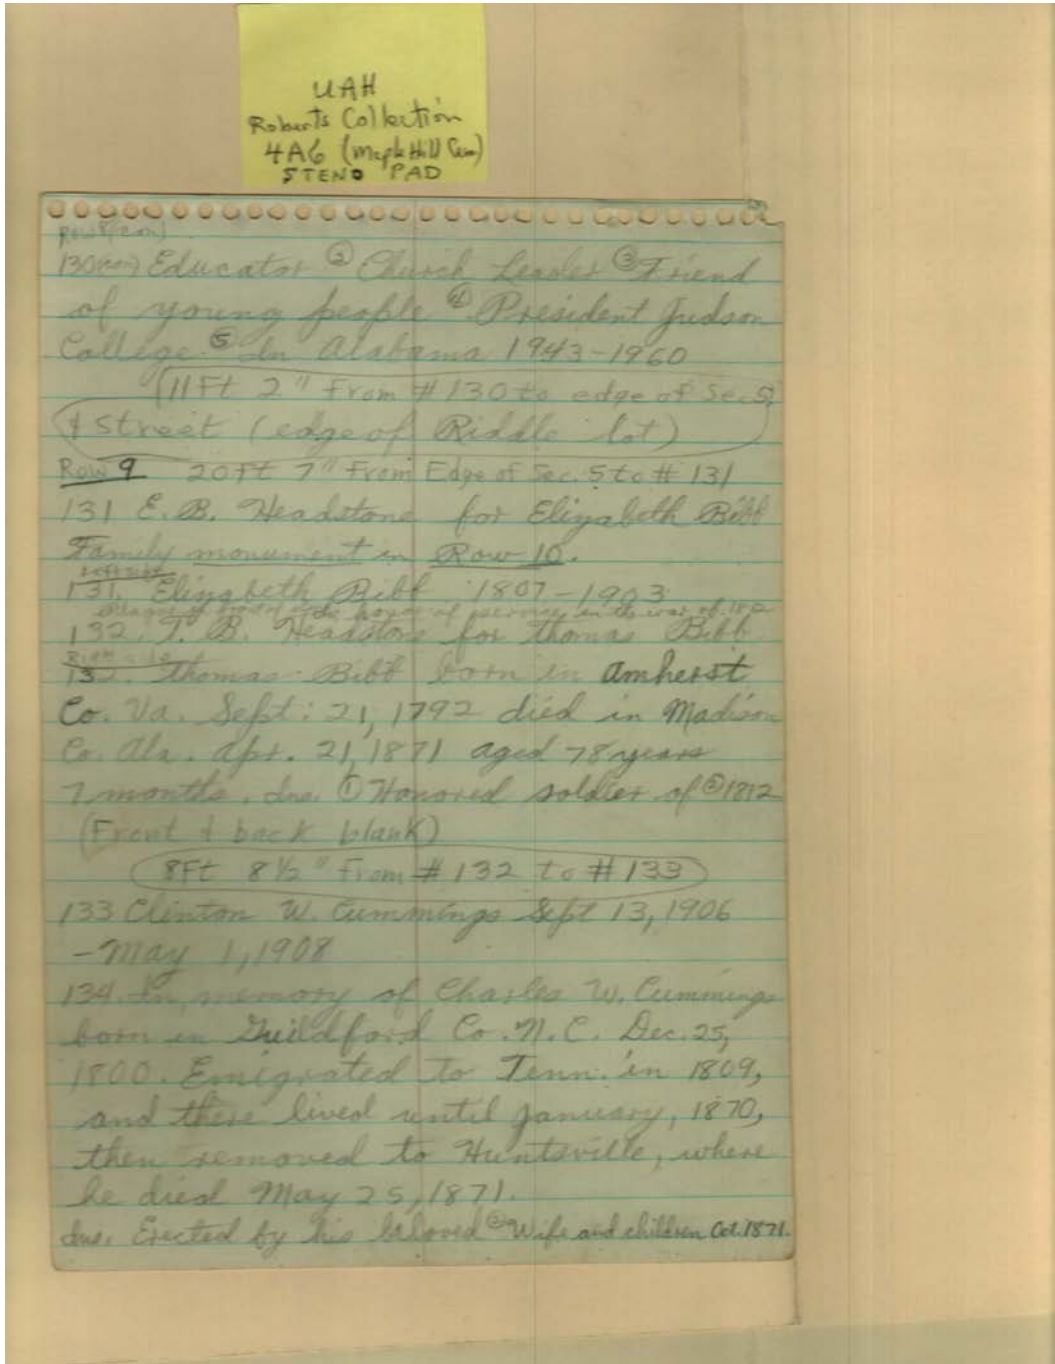 UAH
Roberts Collection
4A6 (Maple Hill Cem)
STENO PAD
Row 8 (con)
130 (con) Educator ② Church Leader ③ Friend
of young people ④ President Judson
College ⑤ In Alabama 1943-1960
11 Ft 2" From #130 to edge of Sec. 5
& Street (edge of Riddle lot)
Row 9 20 Ft 7" From Edge of Sec. 5 to # 131
131 E. B. Headstone for Elizabeth Bibb
Family monument in Row 10.
Left side
131. Elizabeth Bibb 1807-1903
in the war of 1812
132. T. B. Headstone for Thomas Bibb
Right side
132. Thomas Bibb born in Amherst
Co. Va. Sept: 21, 1792 died in Madison
Co. Ala. Apr. 21, 1871 aged 78 years
7 months. Ins. ① Honored soldier of ② 1812
(Front & back blank)
8 Ft 8 1/2" From # 132 to # 133
133 Clinton W. Cummings Sept 13, 1906
- May 1, 1908
134. In memory of Charles W. Cummings
born in Guildford Co. N.C. Dec. 25,
1800. Emigrated to Tenn. in 1809,
and there lived until January, 1870,
then removed to Huntsville, where
he died May 25, 1871.
Ins. Erected by his beloved ② Wife and children Oct. 1871.